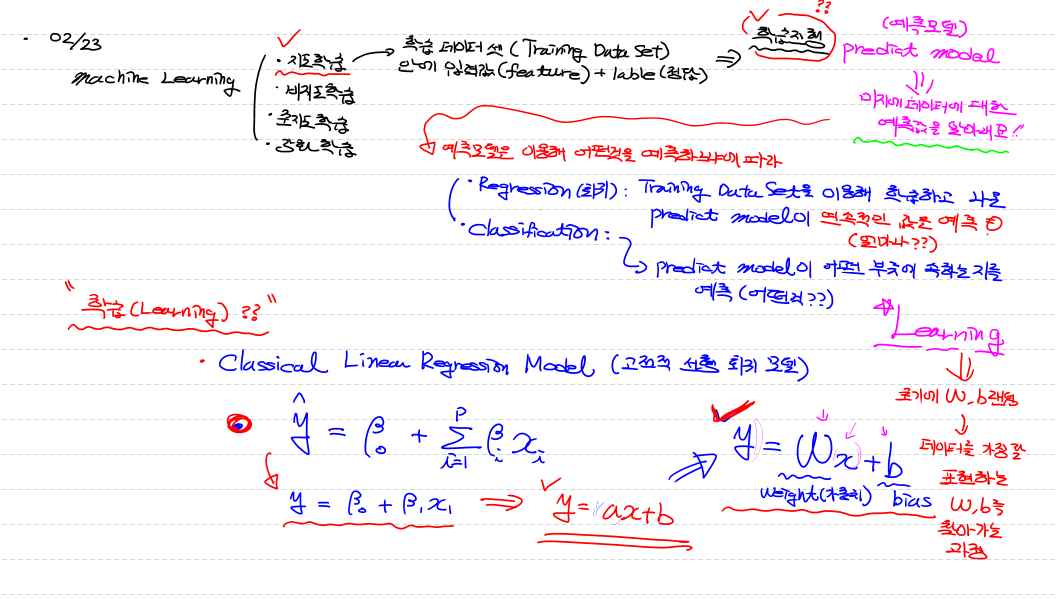 · 02/23
Machine Learning
· 지도학습
· 비지도학습
· 준지도학습
· 강화학습
학습 데이터 셋 (Training Data Set)
안에 입력값(feature) + lable(정답)
⇒
학습진행
??
(예측모델)
predict model
미지에 데이터에 대한
예측값을 알아내요!!
예측모델은 이용해 어떤것을 예측하느냐에 따라
· Regression (회귀) : Training Data Set을 이용해 학습하고 나온
predict model이 연속적인 값을 예측
(얼마나??)
· Classification :
predict model이 어떤 부류에 속하는지를
예측 (어떤것??)
" 학습(Learning) ?? "
· Classical Linear Regression Model (고전적 선형 회귀 모델)
ŷ = β₀ + Σ β_i x_i
p
i=1
y = β₀ + β₁x₁ ⇒ y = ax+b
y = Wx + b
weight(가중치) bias
Learning
초기에 W, b 랜덤
데이터를 가장 잘
표현하는
W, b를
찾아가는
과정